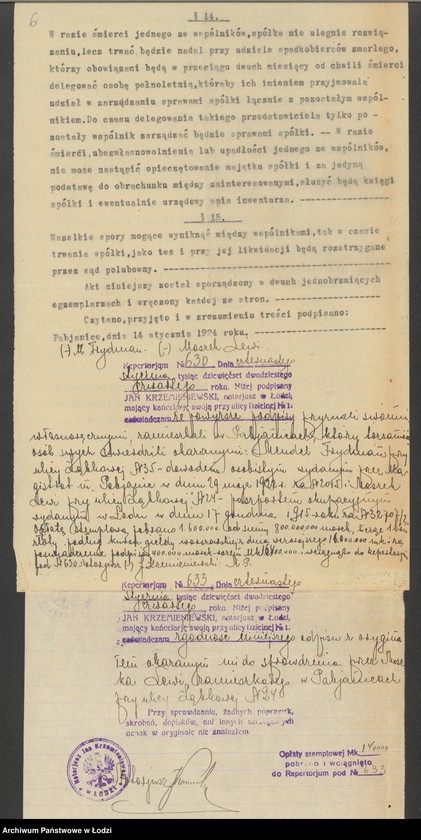 6
§ 14.
W razie śmierci jednego ze wspólników, spółka nie ulegnie rozwią-
zaniu, lecz trwać będzie nadal przy udziale spadkobierców zmarłego,
którzy obowiązani będą w przeciągu dwuch miesięcy od chwili śmierci
delegować osobę pełnoletnią, któraby ich imieniem przyjmowała
udział w zarządzaniu sprawami spółki łącznie z pozostałym wspól-
nikiem. Do czasu delegowania takiego przedstawiciela tylko po-
zostały wspólnik zarządzać będzie sprawami spółki. -- W razie
śmierci, ubezwłasnowolnienia lub upadłości jednego ze wspólników,
nie może nastąpić opieczętowanie majątku spółki i za jedyną
podstawę do obrachunku między zainteresowanymi, służyć będą księgi
spółki i ewentualnie urzędowy spis inwentarza.
§ 15.
Wszelkie spory mogące wyniknąć między wspólnikami, tak w czasie
trwania spółki, jako też i przy jej likwidacji będą rozstrzygane
przez sąd polubowny.
Akt niniejszy został sporządzony w dwuch jednobrzmiących
egzemplarzach i wręczony każdej ze stron.
Czytano, przyjęto i w zrozumieniu treści podpisano:
Pabjanice, dnia 14 stycznia 1924 roku,
(-) M. Frydman. (-) Moszek Lewi.
Repertorjum № 630 Dnia czternastego
stycznia tysiąc dziewięćset dwudziestego
czwartego roku. Niżej podpisany
JAN KRZEMIENIEWSKI, notarjusz w Łodzi,
mający kancelarję swoją przy ulicy Dzielnej № 1,
zaświadczam że powyższe podpisy przyznali swoimi
własnoręcznymi, zamieszkali w Pabjanicach, który tożsamość
osób swych stwierdzili okazanymi: Mendel Frydman przy
ulicy Dąbkowej № 35 - dowodem osobistym wydanym przez Ma-
gistrat m. Pabjanic w dniu 29 maja i Moszek
Lewi przy ulicy Dąbkowej № 24 - paszportem okupacyjnym
wydanym w Łodzi w dniu 17 grudnia 1915 roku za №
Opłatę stemplową pobrano 1.600.000 od sumy 800.000.000 marek,
podług kursu giełdy
poświadczenie podpisów
pod № 630. Notarjusz (-) J. Krzemieniewski
Repertorjum № 633 Dnia czternastego
stycznia tysiąc dziewięćset dwudziestego
czwartego roku. Niżej podpisany
JAN KRZEMIENIEWSKI, notarjusz w Łodzi,
mający kancelarję swoją przy ulicy Dzielnej № 1,
zaświadczam zgodność niniejszego odpisu z orygina-
łem okazanym mi do sprawdzenia przez Mosz-
ka Lewi, zamieszkałego w Pabjanicach
przy ulicy Dąbkowej № 24
Przy sprawdzaniu, żadnych poprawek,
skrobań, dopisków, ani innych szczególnych
oznak w oryginale nie znalazłem.
Notarjusz
Opłaty stemplowej Mk.
pobrano i wciągnięto
do Repertorjum pod № 633
Notarjusz Jan Krzemieniewski
w ŁODZI
Archiwum Państwowe w Łodzi